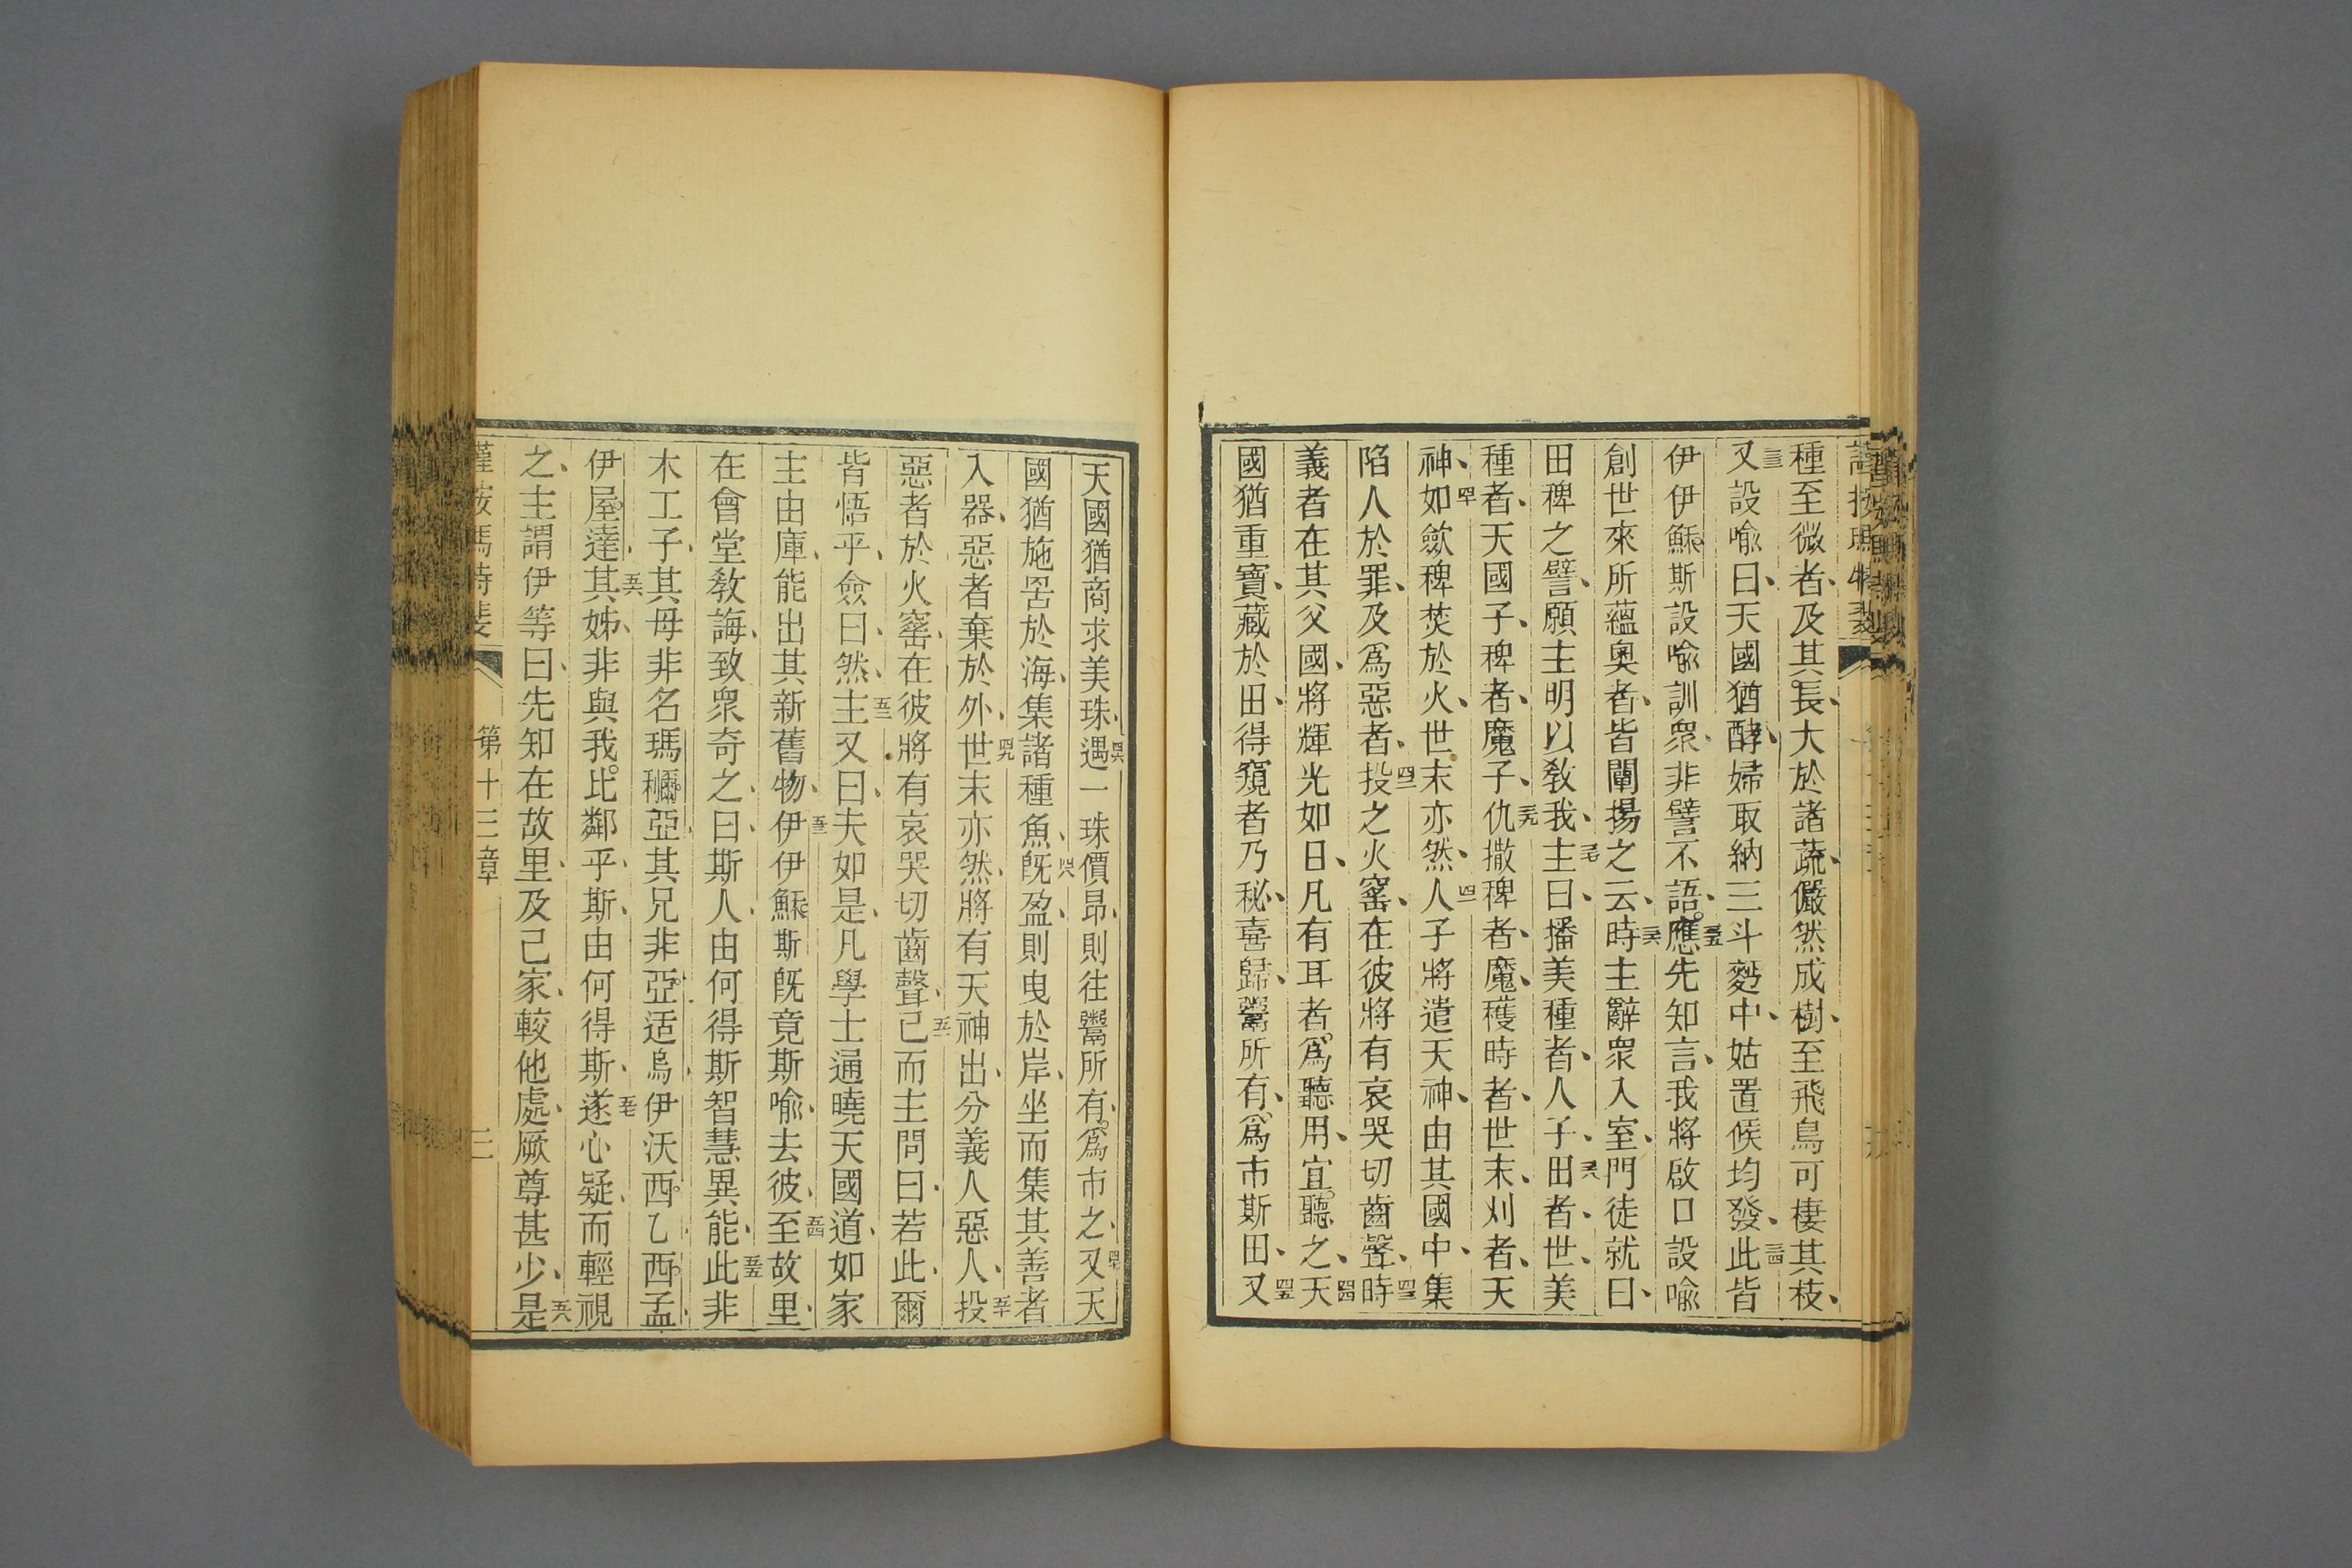 種至微者、及其長、大於諸蔬、儼然成樹、至飛鳥可棲其枝、
又設喻曰、天國猶酵、婦取納三斗麪中、姑置候均發、此皆
伊伊穌斯設喻訓衆、非譬不語。應先知言、我將啟口設喻
創世來所蘊奧者、皆闡揚之云、時主辭衆入室、門徒就曰、
田稗之譬、願主明以敎我、主曰、播美種者、人子、田者、世、美
種者、天國子、稗者、魔子、仇撒稗者、魔、穫時者、世末、刈者、天
神、如歛稗焚於火、世末亦然、人子將遣天神、由其國中、集
陷人於罪、及爲惡者、投之火窰、在彼將有哀哭切齒聲、時
義者在其父國、將輝光如日、凡有耳者。爲聽用、宜。聽之、天
國猶重寶、藏於田、得窺者乃秘、喜歸、鬻所有、爲市斯田、又
天國猶商求美珠、遇一珠價昂、則往鬻所有。爲市之、又天
國猶施罟於海、集諸種魚、旣盈、則曳於岸、坐而集其善者
入器、惡者棄於外、世末亦然、將有天神出、分義人惡人、投
惡者於火窰、在彼將有哀哭切齒聲、已而主問曰、若此、爾
皆悟乎、僉曰、然、主又曰、夫如是、凡學士通曉天國道、如家
主由庫、能出其新舊物、伊伊穌斯旣竟斯喻、去彼、至故里、
在會堂敎誨、致衆奇之、曰、斯人、由何得斯智慧異能、此非
木工子、其母非名瑪穪亞、其兄非亞适烏伊沃西乙西孟
伊屋達、其姊、非與我比鄰乎、斯、由何得斯、遂心疑、而輕視
之、主謂伊等曰、先知在故里、及己家、較他處、厥尊甚少、是
第十三章